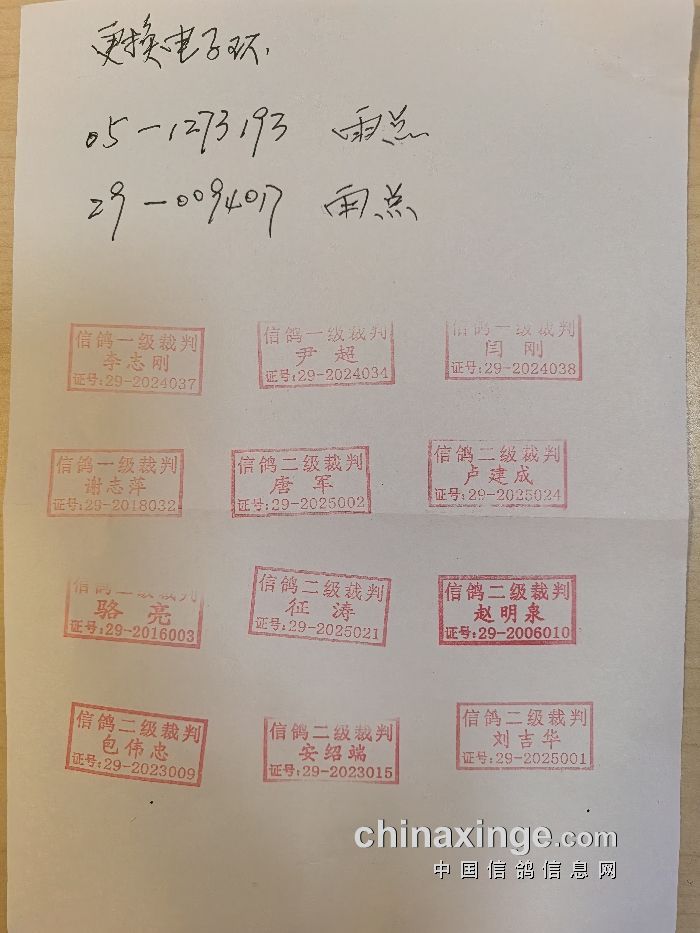 更换电子环.
05-1273193 雨点
29-0094017 雨点
信鸽一级裁判 信鸽一级裁判 信鸽一级裁判
李志刚 尹超 闫刚
证号:29-2024037 证号:29-2024034 证号:29-2024038
信鸽一级裁判 信鸽二级裁判 信鸽二级裁判
谢志萍 唐军 卢建成
证号:29-2018032 证号:29-2025002 证号:29-2025024
信鸽二级裁判 信鸽二级裁判 信鸽二级裁判
骆亮 征涛 赵明泉
证号:29-2016003 证号:29-2025021 证号:29-2006010
信鸽二级裁判 信鸽二级裁判 信鸽二级裁判
包伟忠 安绍端 刘吉华
证号:29-2023009 证号:29-2023015 证号:29-2025001
chinaxinge.com
中国信鸽信息网